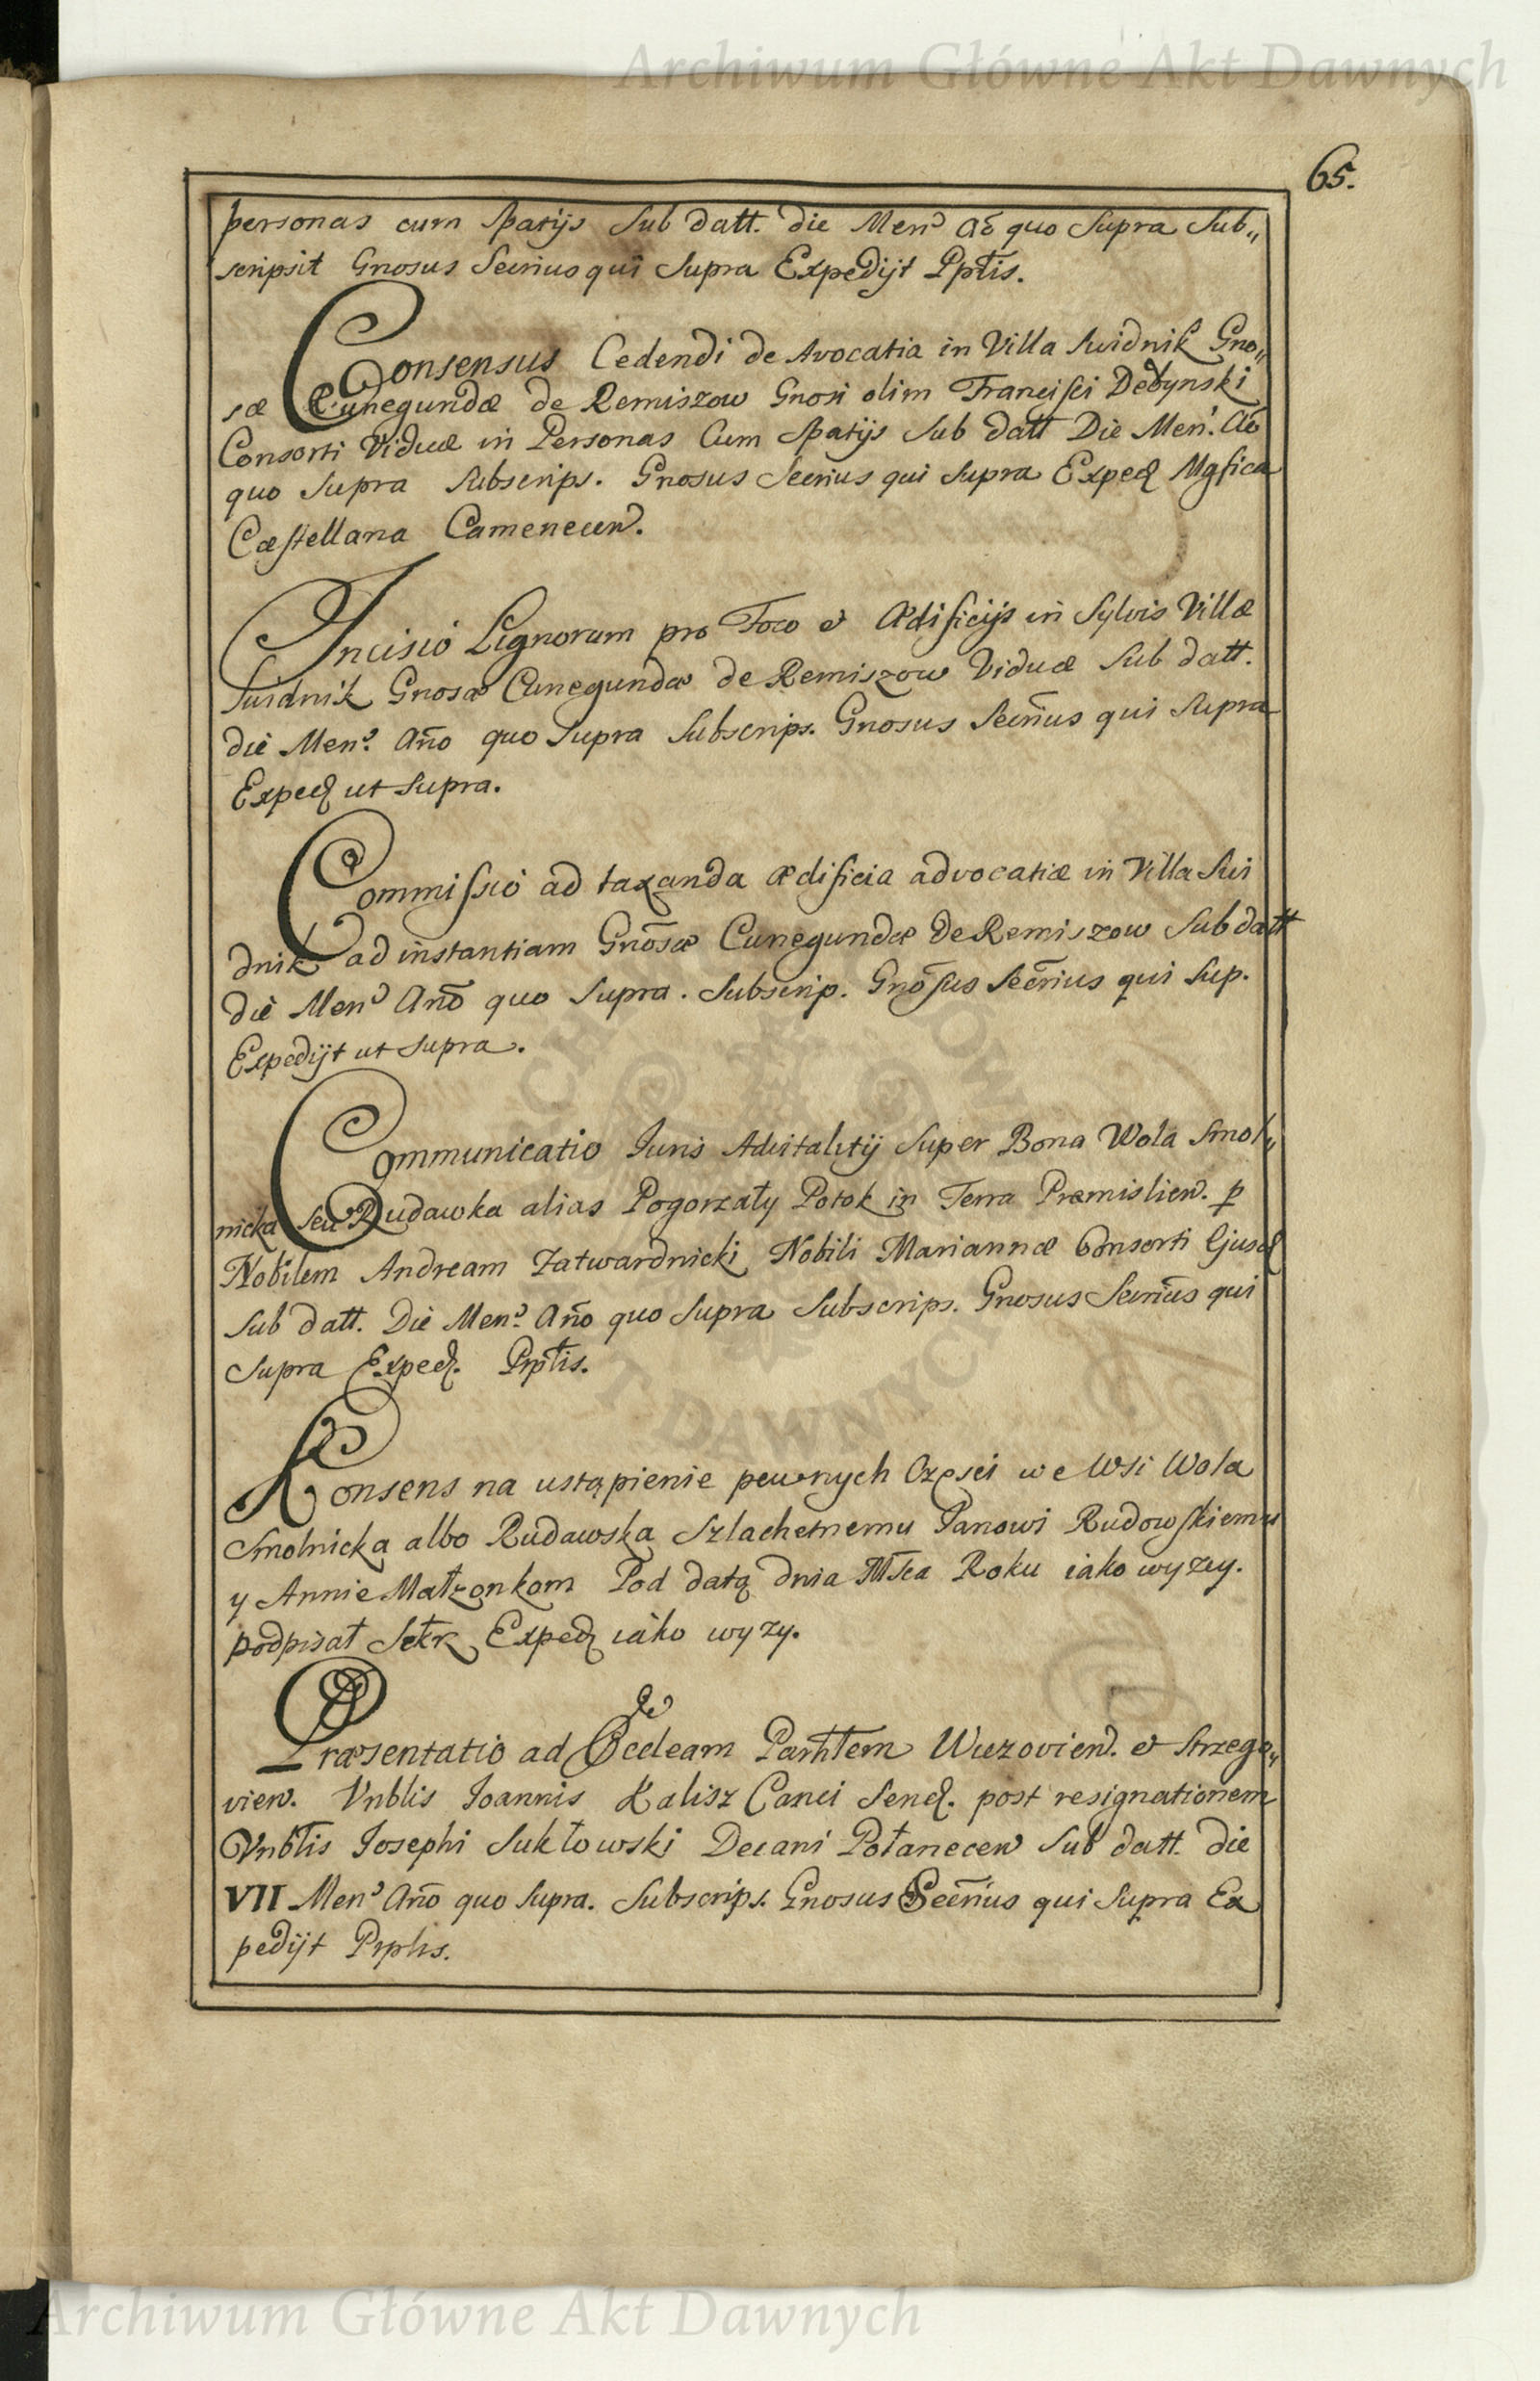 Archiwum Główne Akt Dawnych
65.
personas cum spatijs sub datt. die Mens Ao quo supra sub„
scripsit Gnosus Secrius qui supra Expedijt Pptis.
Consensus Cedendi de Avocatia in Villa Swidnik Gno„
sæ Cunegundæ de Remiszow Gnosi olim Francisci Debynski
Consorti Viduæ in Personas Cum spatijs sub datt Die Men. Ao
quo supra subscrips. Gnosus Secrius qui supra Exped Mgfica
Castellana Camenecen.
Incisio Lignorum pro Foco et Ædificijs in Sylvis Villæ
Swidnik Gnosæ Cunegundæ de Remiszow Viduæ sub datt.
die Mens Año quo supra subscrips. Gnosus Secrius qui supra
Exped ut supra.
Commissio ad taxanda ædificia advocatiæ in Villa Swi
dnik ad instantiam Gnōsæ Cunegundæ de Remiszow sub datt
die Mens Año quo supra. subscrip. Gnōsus Secrius qui sup.
Expedijt ut supra.
Communicatio Juris Advitalitij super Bona Wola Smol„
nicka seu Rudawka alias Pogorzały Potok in Terra Præmislien. p
Nobilem Andream Zatwardnicki Nobili Mariannæ Consorti Ejusd
sub datt. Die Mens Año quo supra subscrips. Gnosus Secrius qui
supra Exped. Prptis.
Konsens na ustąpienie pewnych Częsci we Wsi Wola
Smolnicka albo Rudawska Szlachetnemu Panowi Rudowskiemu
y Annie Małżonkom Pod datą dnia Msca Roku iako wyzey.
podpisał Sekr Exped iako wyzy.
Præsentatio ad Eccleam Parhlem Wuzovien. et Strzego„
vien. Vnblis Joannis Kalisz Canci Send. post resignationem
Vnblis Josephi Sukłowski Decani Połanecen sub datt. die
VII Mens Año quo supra. subscrips. Gnosus Secrius qui supra Ex
pedijt Prptis.
Archiwum Główne Akt Dawnych